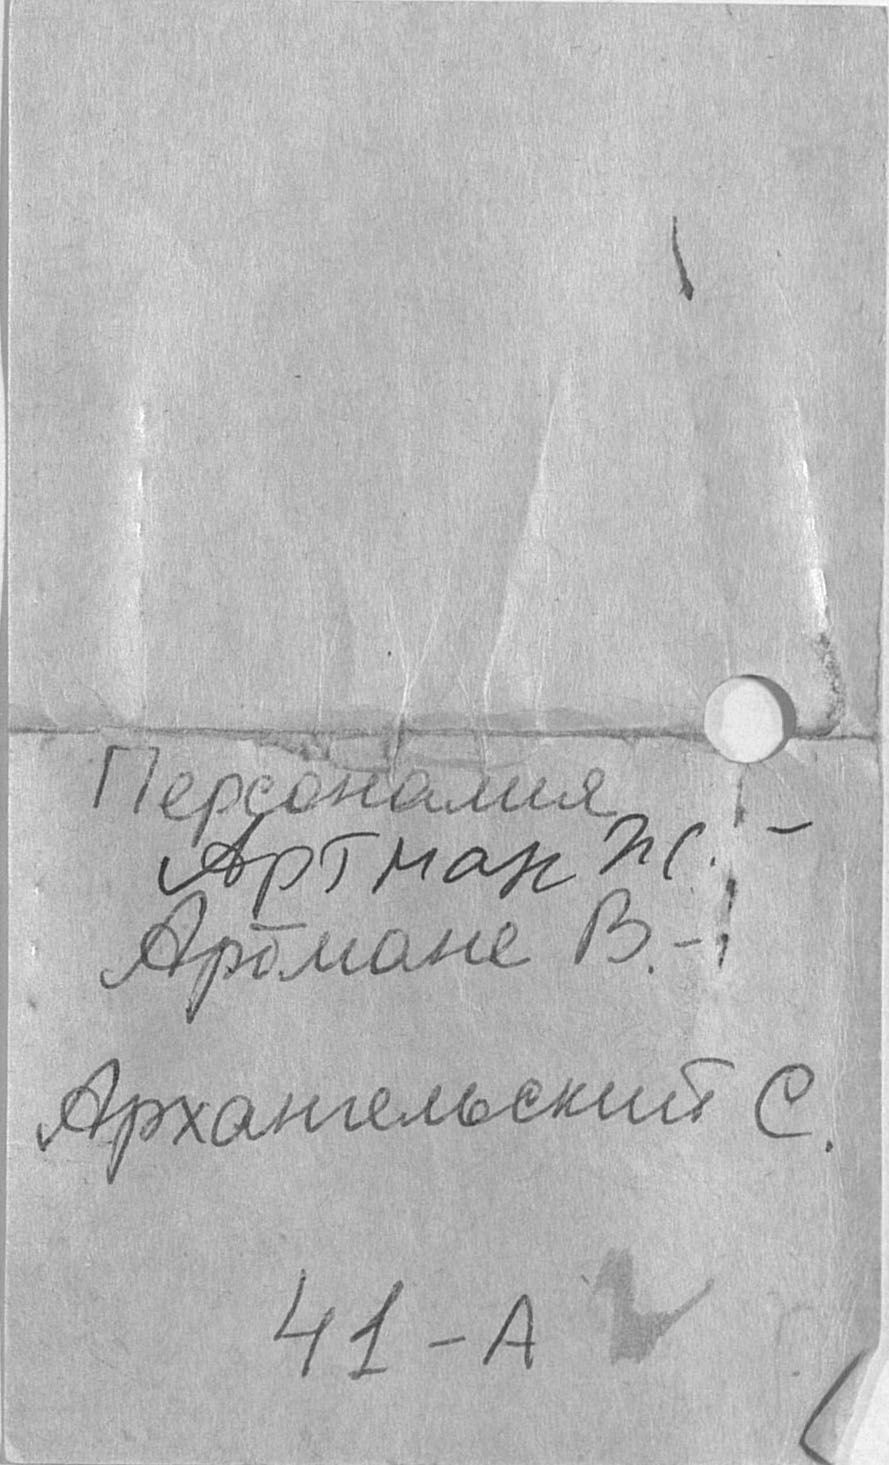 Персоналия
Артман Ж. -
Артмане В. -
Архангельский С.
41-А